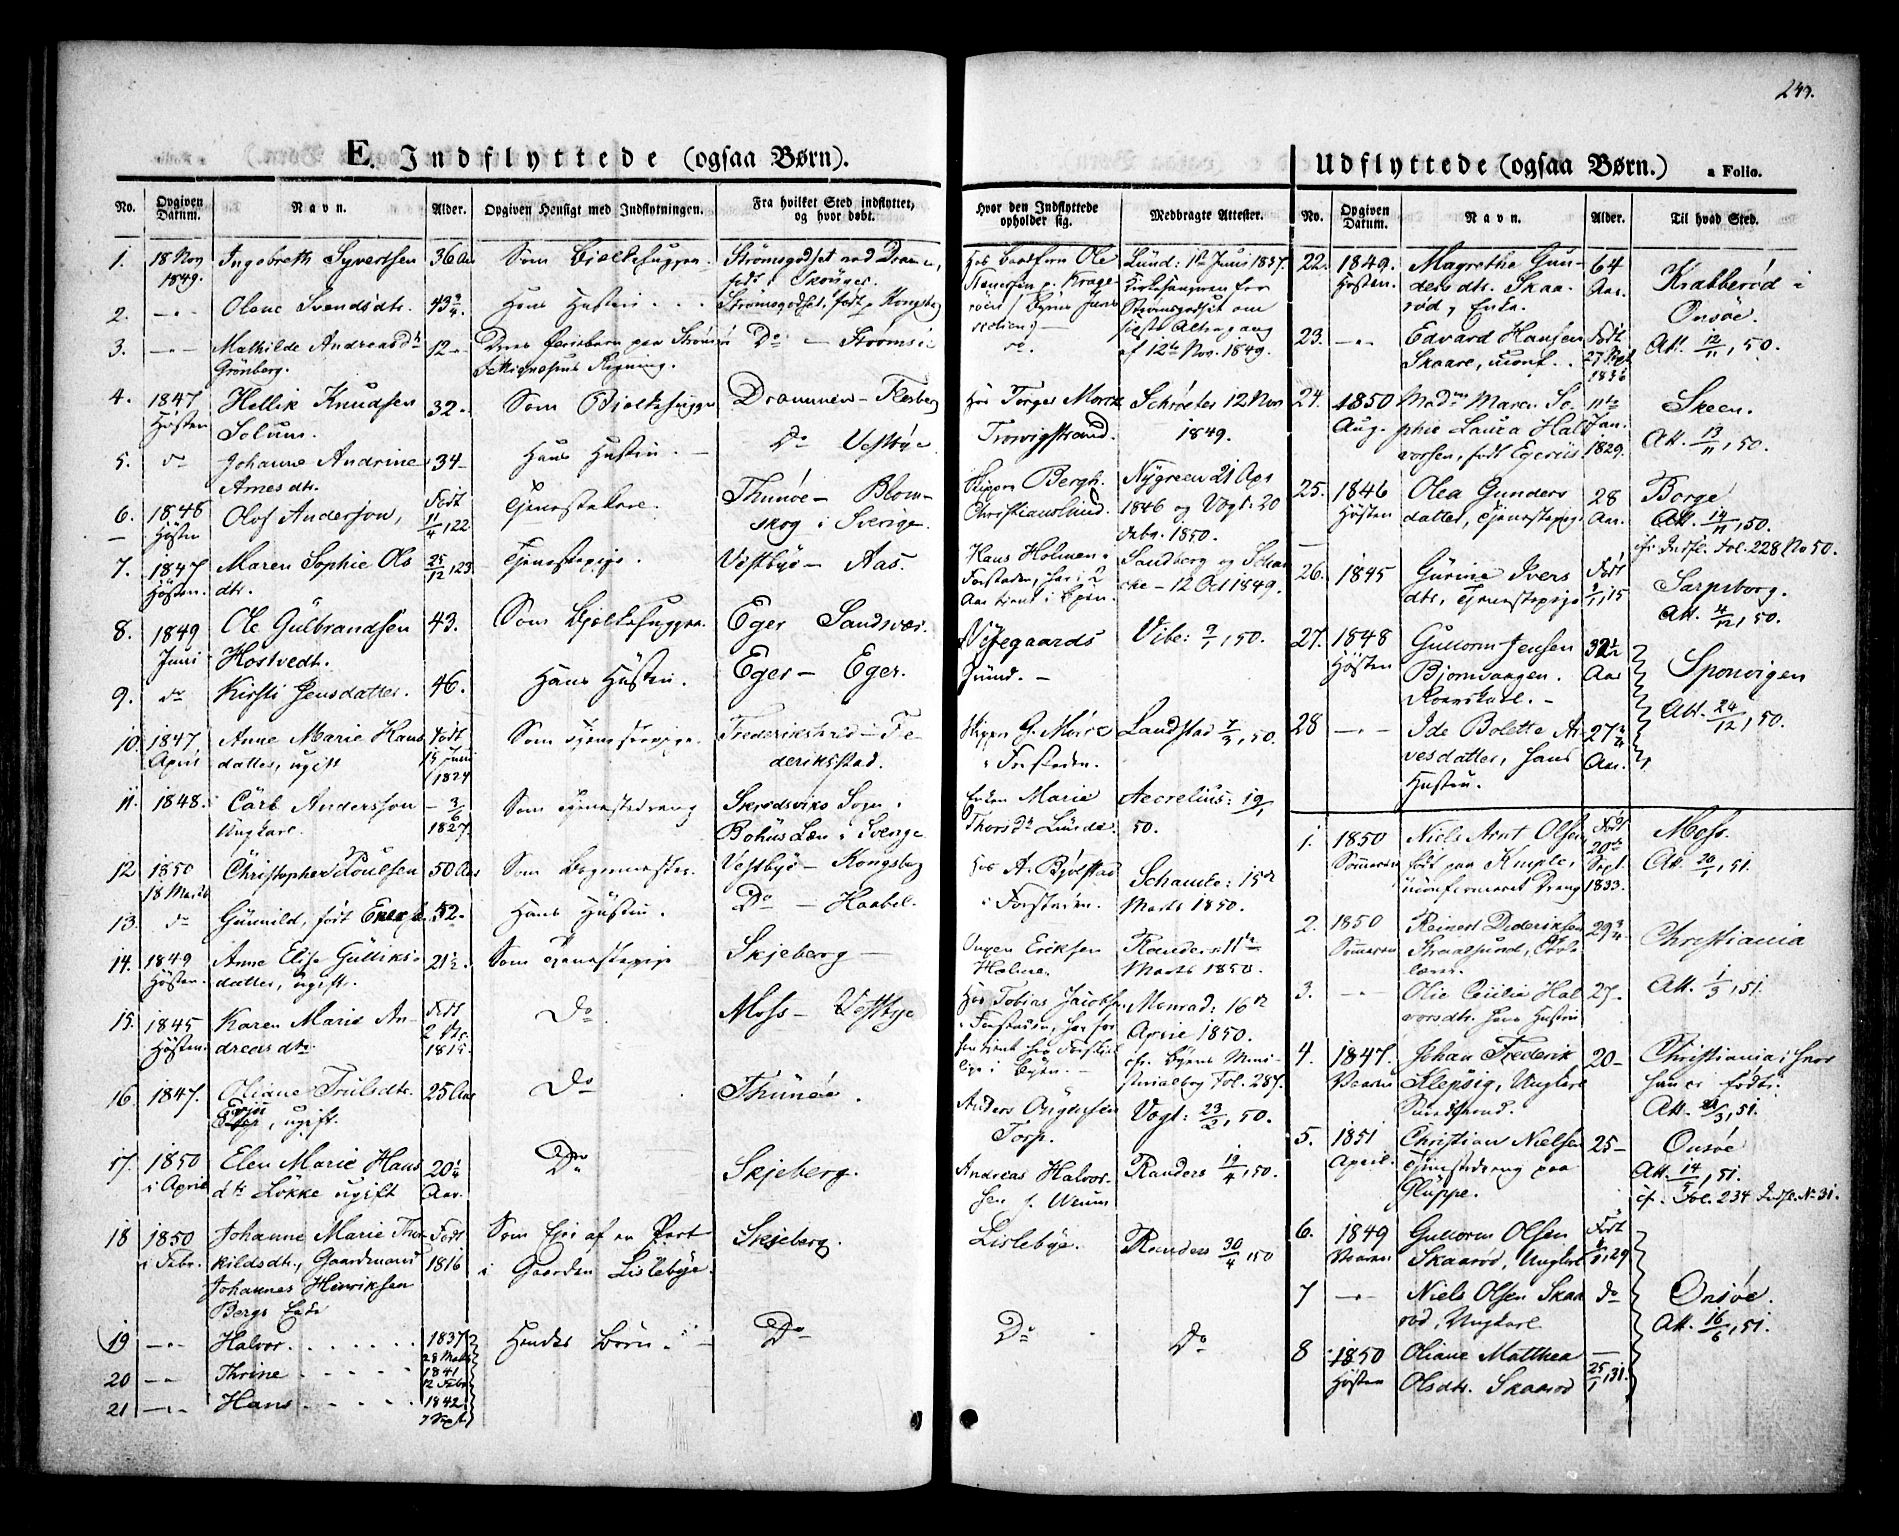 243.
E. Indflyttede (ogsaa Børn).
No. Opgiven Datum. Navn. Alder. Opgiven Hensigt med Indflytningen. Fra hvilket Sted indflyttet, og hvor døbt.
1. 18 Nov 1849. Ingebreth Syvertsen 36 Aar Som Bjelkehugger. Strømsgodset ved Drammen, født i Skouger.
2. —"— Olene Svendsdtr. 43 3/4. Hans Hustru. Strømsgodset, født p. Kongsberg
3. —"— Mathilde Andreasdtr Grønberg. 12 — Deres Pleiebarn paa Do — Strømsøe
4. 1847 Høsten Hellik Knudsen Solum. 32. Som Bjelkehugger Drammen — Flesberg
5. do Johanne Andrine Arnesdtr. 34 — Hans Hustru. — Do Vestbye
6. 1848 Høsten Olof Andersson, Født 11/4, 22 Tjenestekarl. Thunøe — Blomskog i Sverige.
7. 1847 Høsten. Maren Sophie Olsdtr. 25/12, 23. Tjenestepige. Vestbye — Aas.
8. 1849 Juni Ole Gulbrandsen Hostvedt. 43. Som Bjelkehugger. Eger Sandsvær.
9. do Kirsti Jensdatter. 46. Hans Hustru. Eger — Eger.
10. 1847 April Anne Marie Hansdatter, ugift Født 15 Juni 1824 Som Tjenestepige. Frederikstad — Frederiksstad.
11. 1848. Carl Andersson Ungkarl. — 3/6 1827. Som Tjenestedreng Skredsviks Sogn i Bohus Læn i Sverige
12 1850 18 Marts Christopher Poulsen 50 Aar Som Vestbye — Kongsberg
13. do Gunnild, født 52. Hans Hustru. Do — Haabel.
14. 1849 Høsten. Anne Elise Gulliksdatter, ugift. 21 1/2. Som Tjenestepige Skjeberg —
15. 1845 Høsten. Karen Marie Andreasdtr Født 1815. Do Moss — Vestbye
16. 1847. Oliane Trulsdtr. ugift. 25 Aar Do Thunøe.
17. 1850 i April Elen Marie Hansdtr Løkke ugift 20 1/4 Aar. Do Skjeberg.
18 1850 i Febr. Johanne Marie Thorkildsdtr., Gaardmand Johannes Henriksen Bergs Enke Født 1816 Som Eier af en Part i Gaarden Lislebye. Skjeberg.
19 —"— Halvor. 1837 28 Marts Hendes Børn. Do
20 —"— Thrine 1841 12 Febr.
21 —"— Hans. 1842 7 Sept.
Hvor den Indflyttede opholder sig. Medbragte Attester.
Hos Ole Stenersen p. Kragerøen Lund: 1te Juni 1837. Kirkesangeren for Strømsgodset om sidste Altergang af 12te Nov. 1849.
Hos Torger Moræ Trosvigstrand. Schrøter 12 Nov 1849.
Skipper Bergh. Christianslund. Nygreen 21 Apr 1846 og Vogt: 20 Febr. 1850.
Hans Holmen i Forstaden, har i 2 Aar tient i Byen. Sandberg og — 12 Oct 1849.
Grund. — Vibe: 9/1, 50.
Skipper G. Moræ i Forstaden. Landstad 7/3, 50.
Enken Marie Thorsdtr Lunde. Aecrelius: 19/1 50.
Hos A. Bjølstad i Forstaden. Schancke: 15de Marts 1850.
Eriksen Holme. Rande 11te Marts 1850.
Hos Tobias Jacobsen i Forstaden, har forhen tient hos Forskjellige i Byen. — Monrad: 16de April 1850. cfr. Byens Ministerialbog Fol. 287.
Anders Torp. Vogt: 23/2, 50.
Andreas Halvorsen p. Weum Randers 19/4, 50.
Lislebye. Randers 30/4, 50
Do Do
Udflyttede (ogsaa Børn.) a Folio.
No. Opgiven Datum. Navn. Alder. Til hvad Sted.
22. 1849. Høsten. Magrethe Gundersdtr. Skaarød, Enke. 64 Aar. Krabberød i Onsøe.
23. —"— Edvard Hansen Skaare, uconf. Født 27 Sept 1836 Att. 12/11, 50.
24. 1850 Aug. Madme Maren Sophie Laura Halvorsen, født Egerius 11te Jan. 1829. Skeen. Att. 13/11, 50.
25. 1846 Høsten Olea Gundersdatter, Tjenestepige 28 Aar. Borge Att. 14/11, 50. cfr. Indfl. Fol. 228 No 50.
26. 1845 Gurine Iversdtr, Tjenestepige Født 15 Sarpsborg. Att. 4/12, 50.
27. 1848 Høsten Guttorm Jensen Bjornvaagen. 32 1/2 Aar Sponvigen Att. 24/12, 50.
28 —"— Ide Bolette Arvesdatter, hans Hustru. 27 3/4 Aar.
1. 1850 Sommeren Niels Arnt Olsen født paa Kimple, uconfirmeret Dreng Født 20de Sept. 1833. Moss. Att. 20/1, 51.
2. 1850 Sommeren Reinert Dideriksen 29 3/4 Christiania
3. —"— Olie Cecilia Halvorsdtr. hans Hustru 27. Att. 1/3, 51.
4. 1847. Vaaren Johan Frederik Klepsig, Ungkarl 20 — Christiania, hvor han er født. Att. 3, 51.
5. 1851 April. Christian Nielsen Tjenestedreng paa Gluppe. 25 — Onsøe Att. 14/5, 51. cf. Fol. 234 Indfl. No 31.
6. 1849 Vaaren Guttorm Olsen Skaarød, Ungkarl Født 29 Onsøe. Att. 16/6, 51.
7 —"— Niels Olsen Skaarød, Ungkarl do
8 1850 Høsten Oliane Matthea Olsdtr. Skaarød — 25/1, 31.